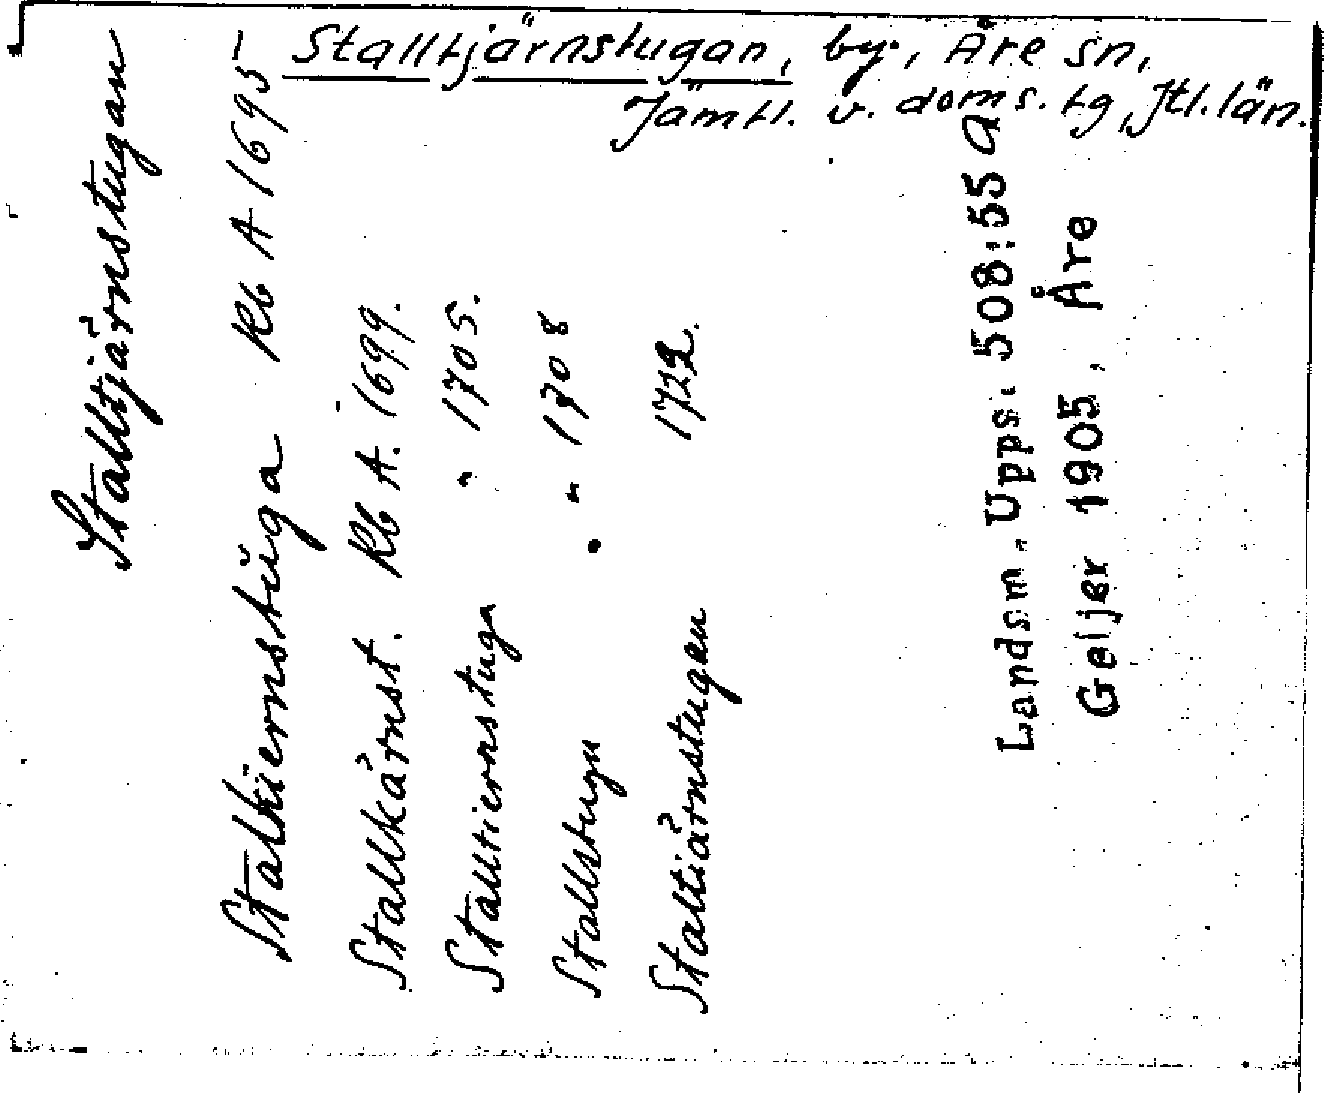 Stalltjärnstugan, by, Åre sn,
Jämtl. v. doms. tg, Jtl. län.
Stalltjärnstugan
Stalkiernstuga Kb A 1695
Stallkärnst. Kb A. 1699.
Stalltiernstuga " 1705.
Stallstugu " 1708
Staltiärnstugan 1722.
Landsm. Upps. 508:55 a
Geijer 1905, Åre